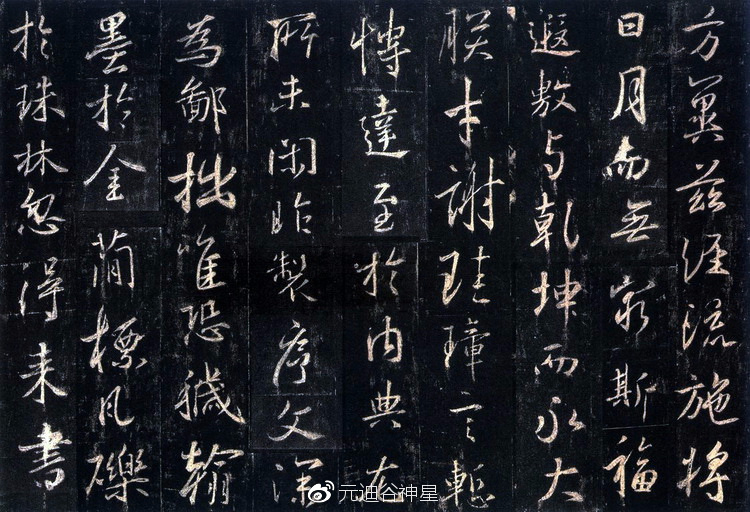 方冀茲經流施將
日月而無窮斯福
遐敷与乾坤而永大
朕才謝珪璋言慙
博達至於内典尤
所未閑昨製序文深
為鄙拙唯恐穢翰
墨於金簡標瓦礫
於珠林忽得来書
元迪谷神星